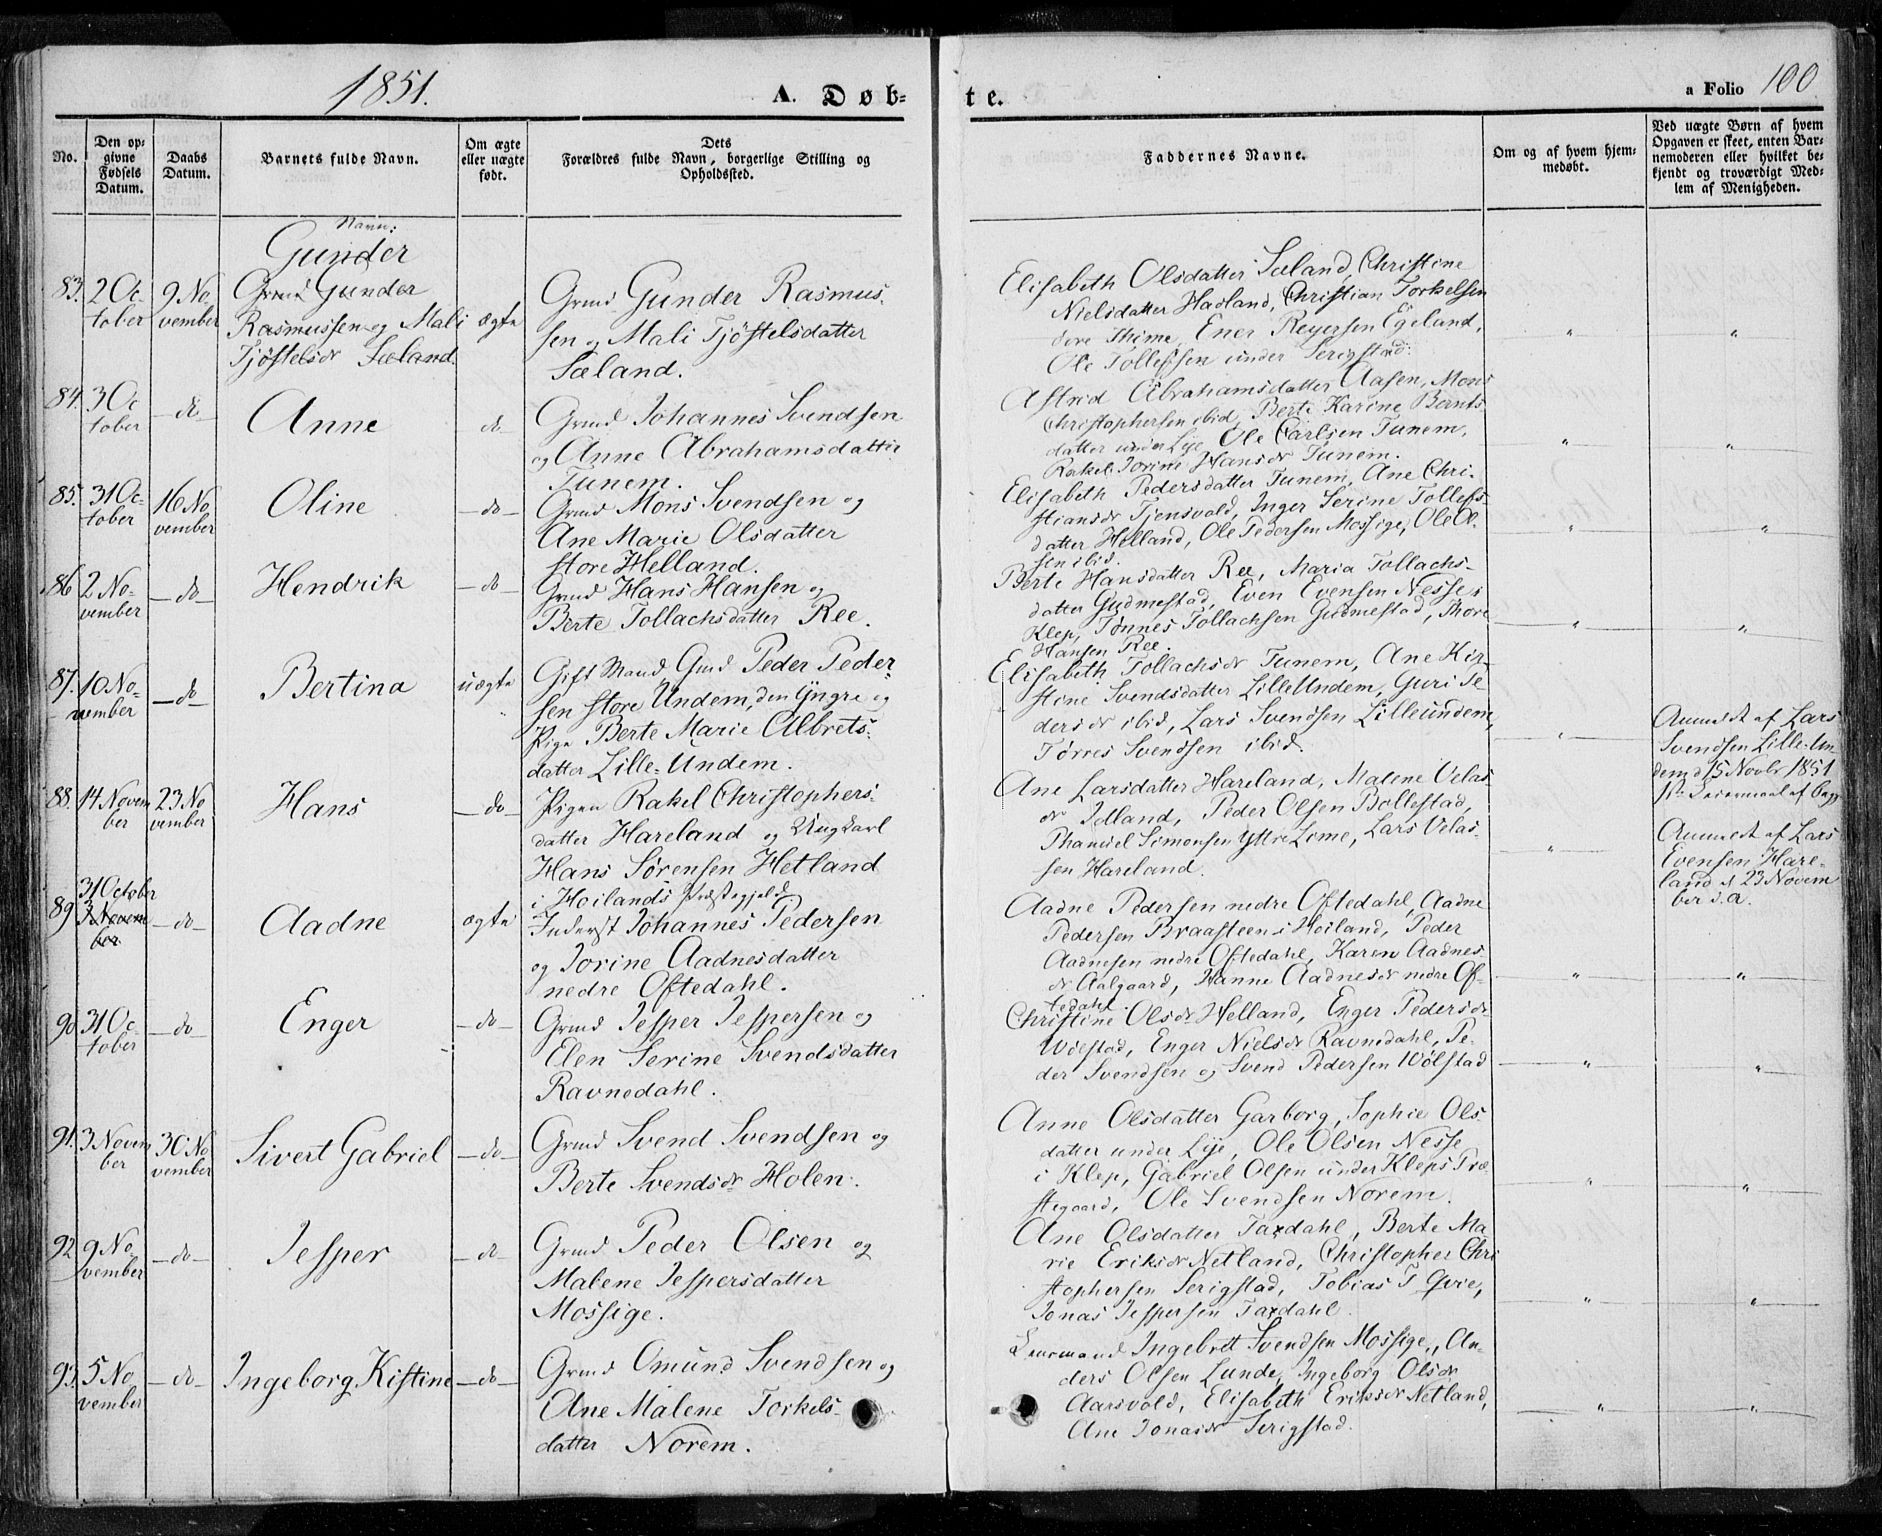 1851.
A. Døb-
te.
a Folio 100
No.
Den op-
givne
Fødsels
Datum.
Daabs
Datum.
Barnets fulde Navn.
Om ægte
eller uægte
født.
Dets
Forældres fulde Navn, borgerlige Stilling og
Opholdssted.
Faddernes Navne.
Om og af hvem hjem-
medøbt.
Ved uægte Børn af hvem
Opgaven er skeet, enten Bar-
nemoderen eller hvilket be-
kjendt og troværdigt Med-
lem af Menigheden.
83.
2 Oc-
tober
9 No-
vember
Navn:
Gunder
Grmd Gunder
Rasmussen og Mali
Tjøstelsdr Sæland.
ægte
Grmd Gunder Rasmus-
sen og Mali Tjøstelsdatter
Sæland.
Elisabeth Olsdatter Sæland, Christine
Nielsdatter Hadland, Christian Torkelsen
Thime, Ener Reyersen Egeland,
Ole Tollefsen under Serigstad.
"
"
84.
3 Oc
tober
do
Anne
do
Grmd Johannes Svendsen
og Anne Abrahamsdatter
Tunem.
Astrid Abrahamsdatter Aasen, Mons
Christophersen ibid, Berte Karine Bernts-
datter under Lye, Ole Carlsen Tunem,
Rakel Jorine Hansdr Tunem.
"
"
85.
31 Oc-
tober
16 No
vember
Oline
do
Grmd Mons Svendsen og
Ane Marie Olsdatter
store Helland.
Elisabeth Pedersdatter Tunem, Ane Chri-
stiansdr Tjensvold, Inger Serine Tollefs
datter Helland, Ole Pedersen Mossige, Ole Ol-
sen ibid.
"
"
86
2 No-
vember
do
Hendrik
do
Grmd Hans Hansen og
Berte Tollachsdatter Ree.
Berte Hansdatter Ree, Maria Tollachs-
datter Gudmestad, Even Evensen Nesse i
Klep, Tønnes Tollachsen Gudmestad, Thore
Hansen Ree.
"
"
87.
10 No-
vember
do
Bertina
uægte
Gift Mand Gmd Peder Peder-
sen store Undem, den Yngre og
Pige Berte Marie Albrets-
datter Lille-Undem.
Elisabeth Tollachsdr Tunem, Ane Kir-
stine Svendsdatter Lille Undem, Guri Pe
dersdr ibid, Lars Svendsen Lilleundem,
Tørres Svendsen ibid.
"
Anmeldt af Lars
Svendsen Lille-Un
dem d 15 Novbr 1851
88.
14 Novem
ber
23 No
vember
Hans
do
Pigen Rakel Christophers-
datter Hareland og Ungkarl
Hans Sørensen Hetland
i Hoilands Præstegjeld
Ane Larsdatter Hareland, Malene Velas-
dr Idland, Peder Olsen Bollestad,
Thaniel Simonsen Yttre Lime, Lars Velas-
sen Hareland.
"
Anmeldt af Lars
Evensen Hare-
land d 23 Novem
ber d.a.
89
31 October
3 Novem
ber
do
Aadne
ægte
Inderst Johannes Pedersen
og Jorine Aadnesdatter
nedre Oftedahl.
Aadne Pedersen nedre Oftedahl, Aadne
Pedersen Braasteen i Hoiland, Peder
Aadnesen nedre Oftedahl, Karen Aadnes
dr Aalgaard, Hanne Aadnesdr nedre Of-
tedahl.
"
"
90
31 Oc
tober
do
Enger
do
Grmd Jesper Jespersen og
Elen Serine Svendsdatter
Ravnedahl.
Christine Olsdr Helland, Enger Pedersdr
Wølstad, Enger Nielsdr Ravnedahl, Pe-
der Svendsen og Svend Pedersen Wølstad
"
"
91.
3 Novem
ber
30 No
vember
Sivert Gabriel
do
Grmd Svend Svendsen og
Berte Svendsdr Holen.
Anne Olsdatter Garborg, Sophie Ols
datter under Lye, Ole Olsen Nesse
i Klep, Gabriel Olsen under Kleps Præ-
stegaard, Ole Svendsen Norem.
"
"
92.
9 No-
vember
do
Jesper
do
Grmd Peder Olsen og
Malene Jespersdatter
Mossige.
Ane Olsdatter Taxdahl, Berte Ma
rie Eriksdr Netland, Christopher Chri
stophersen Serigstad, Tobias T Qvie,
Jonas Jespersen Taxdahl.
"
"
93.
5 No
vember
do
Ingeborg Kistine
do
Grmd Omund Svendsen og
Ane Malene Torkels-
datter Norem.
Lensmand Ingebret Svendsen Mossige, An-
ders Olsen Lunde, Ingeborg Olsdr
Aarsvold, Elisabeth Eriksdr Netland,
Ane Jonasdr Serigstad.
"
"